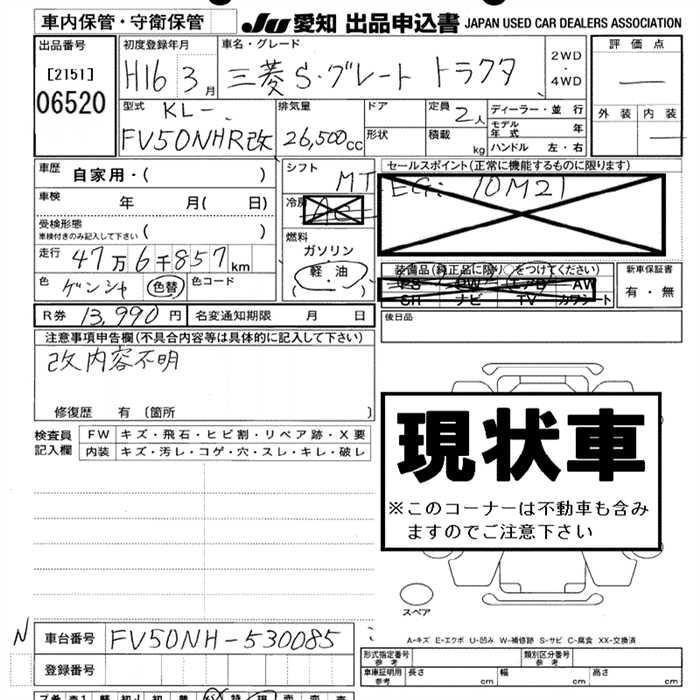 車内保管・守衛保管
JU 愛知 出品申込書 JAPAN USED CAR DEALERS ASSOCIATION
出品番号
[2151]
06520
初度登録年月
H16 3月
車名・グレード
三菱 S・グレート トラクタ
2WD
・
4WD
評価点
外装 内装
型式
KL-
FV50NHR改
排気量
26,500cc
ドア
形状
定員 2人
積載 kg
ディーラー・並行
モデル年式 年
ハンドル 左・右
車歴
自家用・( )
車検
年 月( 日)
受検形態
車検付きのみ記入して下さい ( )
走行
47万6千857km
色 ゲンシャ 色替 色コード
シフト
MT
冷房
AC
燃料
ガソリン
軽油
( ・ )
セールスポイント(正常に機能するものに限ります)
EG: 10M21
装備品(純正品に限り○をつけてください)
PS PW エアB AW
SR ナビ TV カワシート
新車保証書
有・無
R券 13,990円 名変通知期限 月 日
後日品
注意事項申告欄(不具合内容等は具体的に記入して下さい)
改内容不明
修復歴 有 〔箇所 〕
検査員記入欄
FW キズ・飛石・ヒビ割・リペア跡・X要
内装 キズ・汚レ・コゲ・穴・スレ・キレ・破レ
現状車
※このコーナーは不動車も含み
ますのでご注意下さい
スペア
A-キズ E-エクボ U-凹み W-補修跡 S-サビ C-腐食 XX-交換済
N 車台番号 FV50NH-530085
登録番号
型式指定番号
参考
類別区分番号
参考
車庫証明用
参考
長さ cm 幅 cm 高さ cm